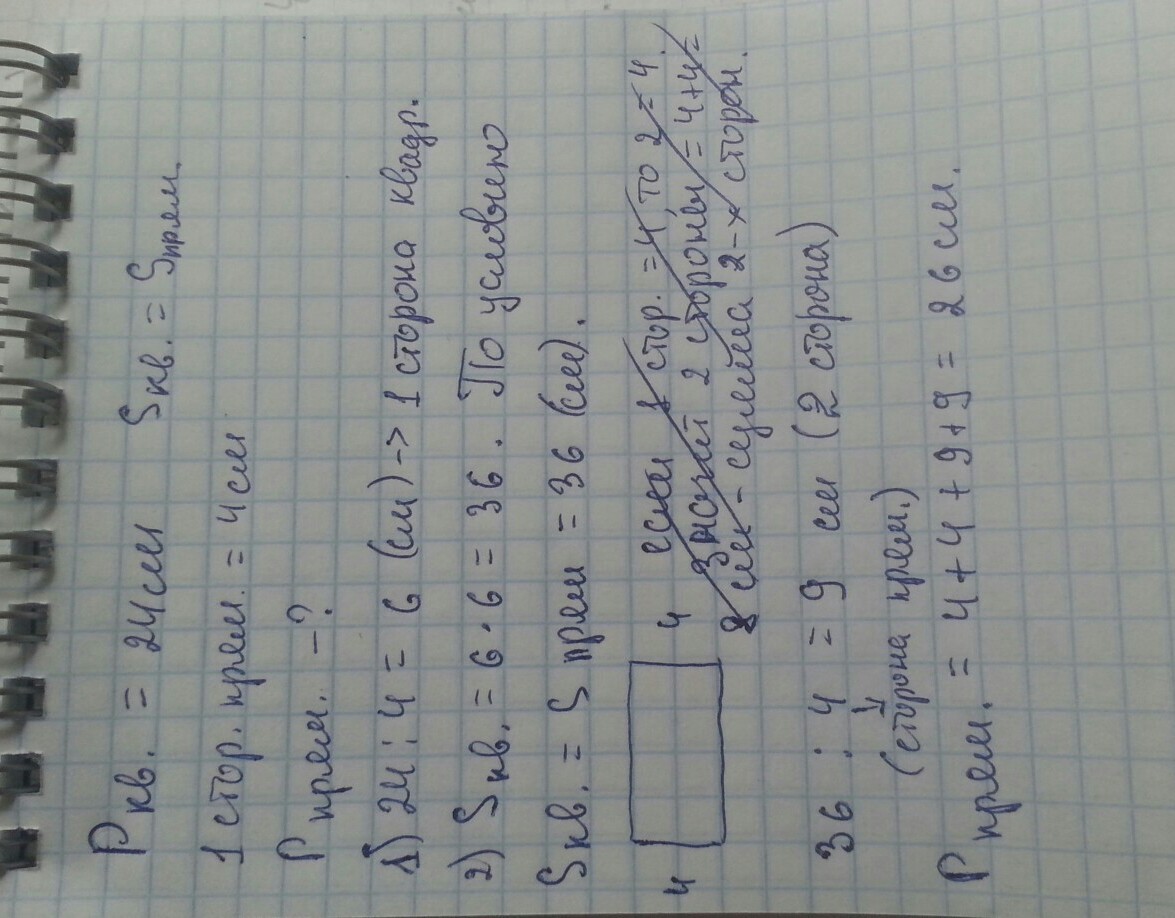 Pкв. = 24см Sкв. = Sпрям.
1 стор. прям. = 4см
P прям. –?
1) 24 : 4 = 6 (см) -> 1 сторона квадр.
2) Sкв. = 6 · 6 = 36. По условию
Sкв. = S прям = 36 (см).
4 4 если 1 стор. = 4, то 2 = 4.
Значит 2 стороны = 4+4=
8 см - сумма 2-х сторон.
36 : 4 = 9 см (2 сторона)
(сторона прям.)
P прям. = 4 + 4 + 9 + 9 = 26 см.